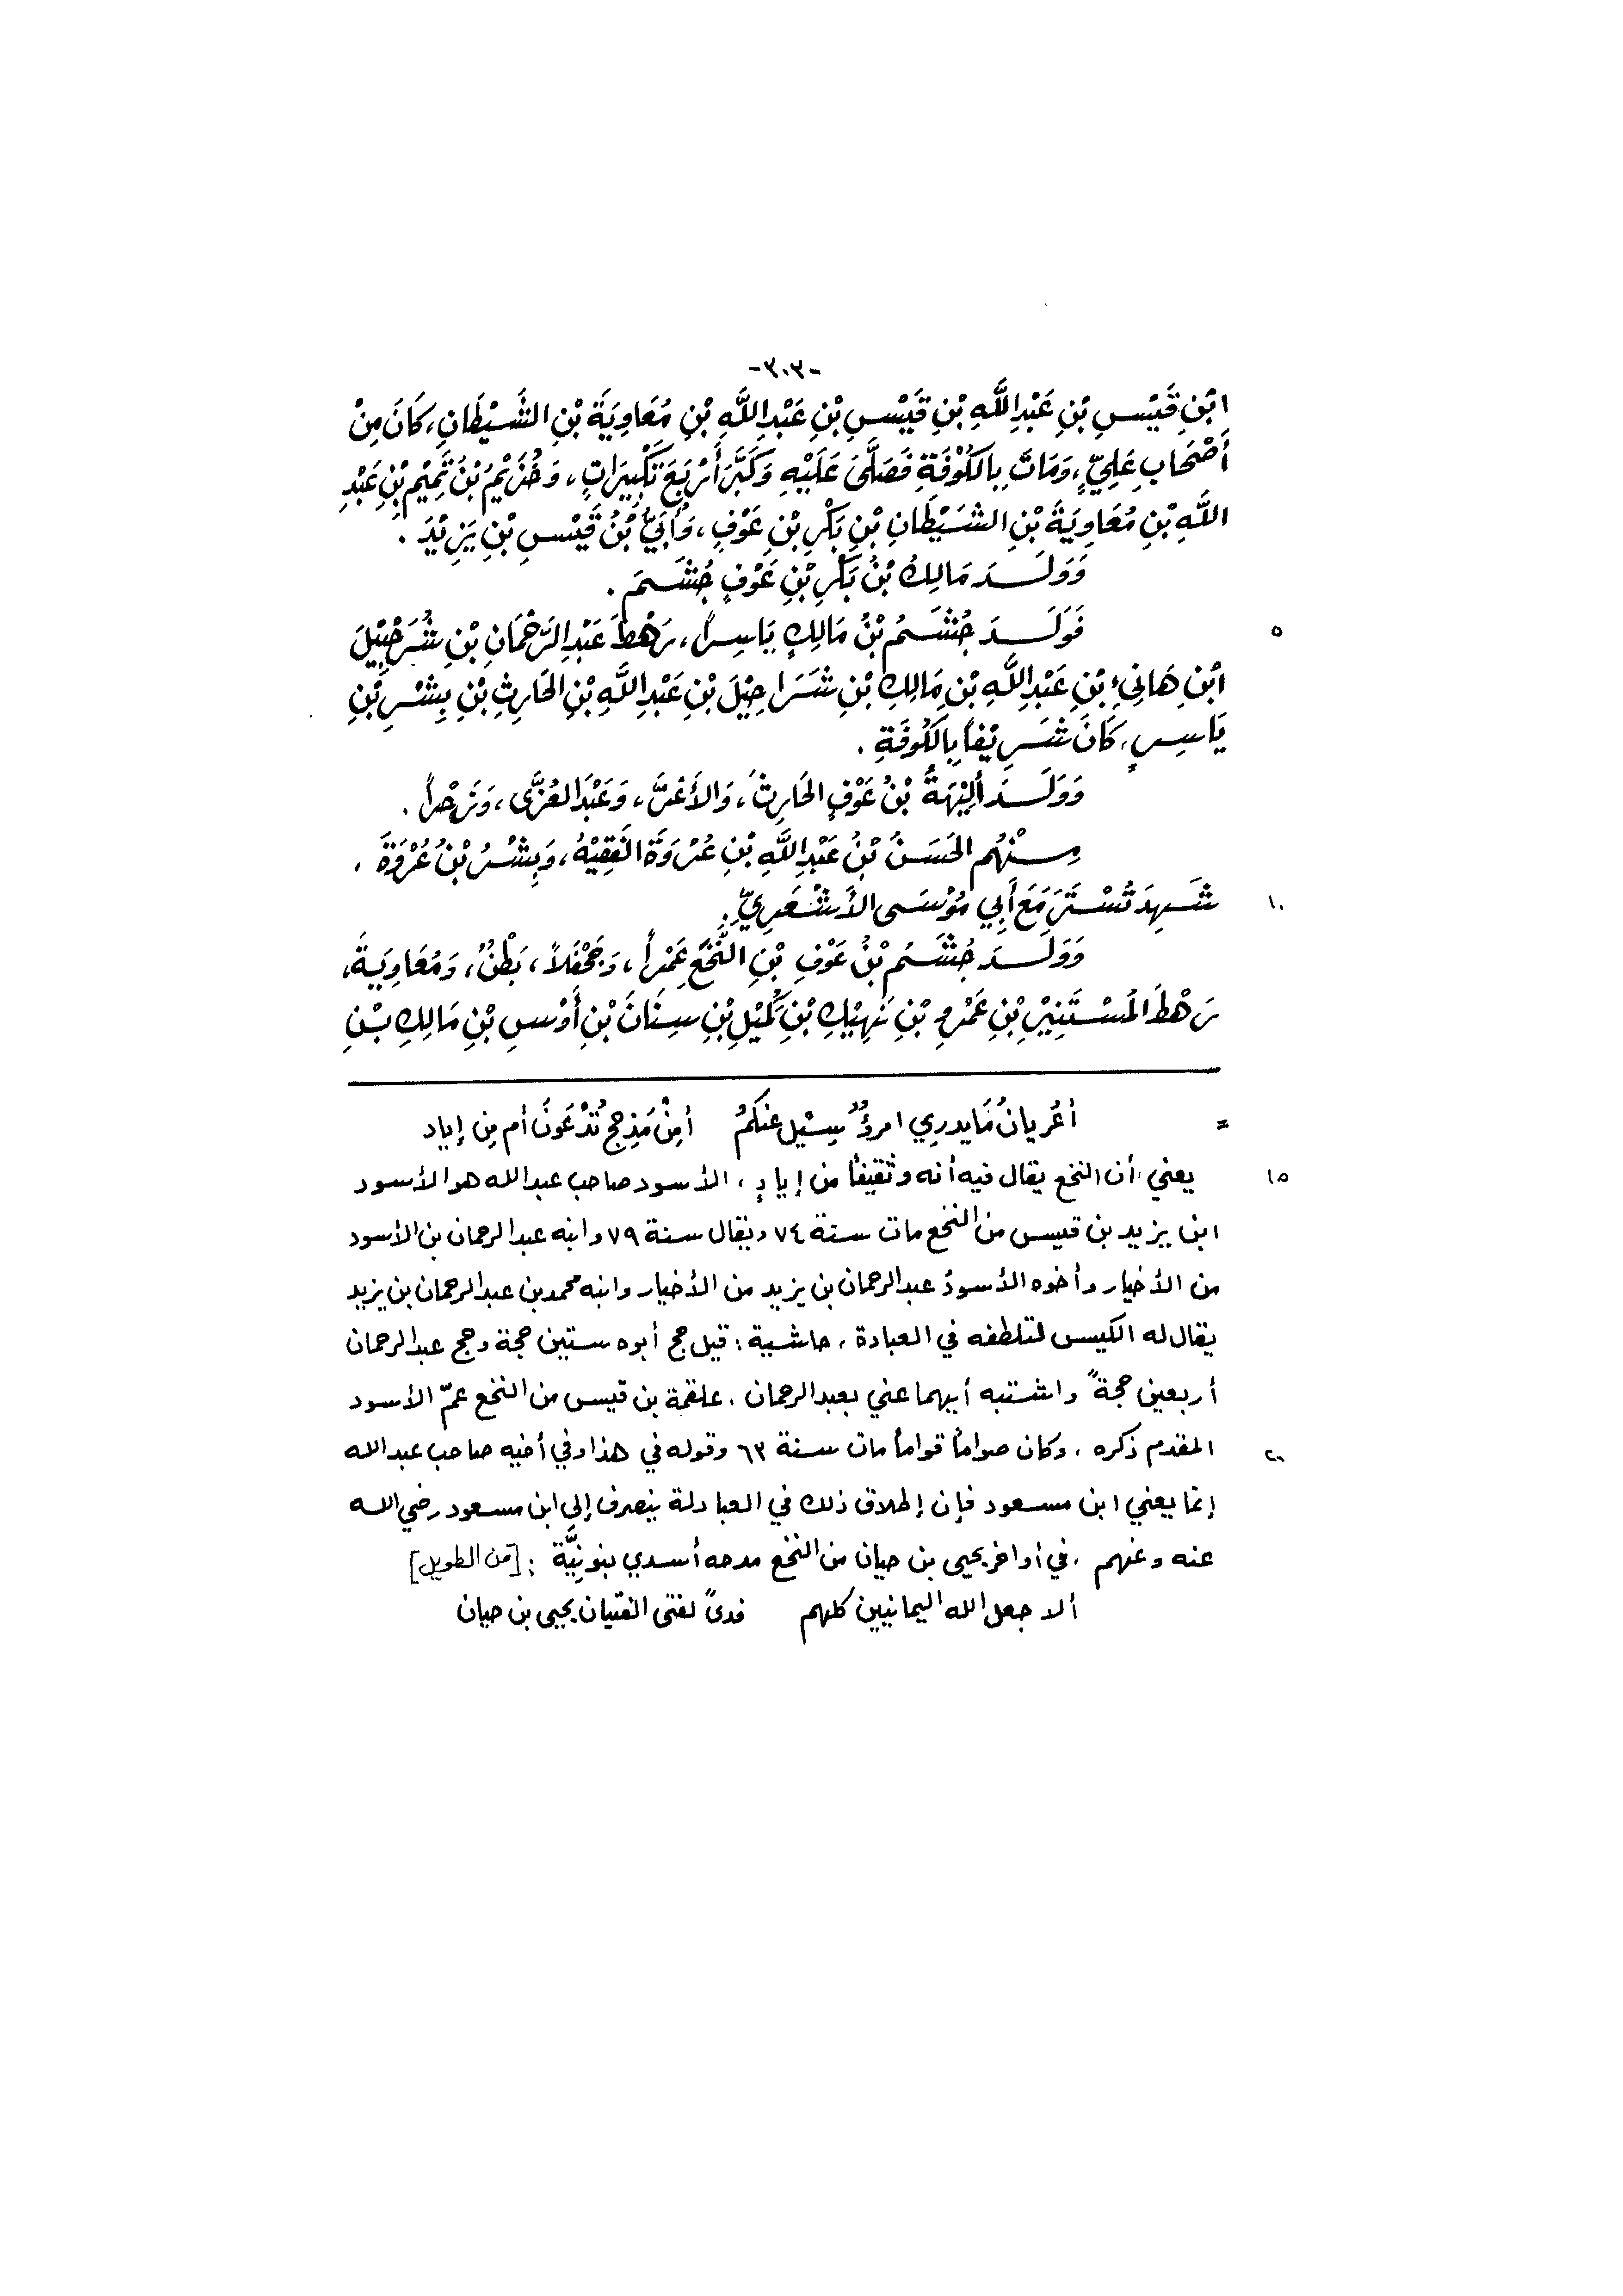 -٣٠٣-
ابْنِ قَيْسِ بْنِ عَبْدِ اللَّهِ بْنِ قَيْسِ بْنِ عَبْدِ اللَّهِ بْنِ مُعَاوِيَةَ بْنِ الشَّيْطَانِ، كَانَ مِنْ
أَصْحَابِ عَلِيٍّ، وَمَاتَ بِالكُوْفَةِ فَصَلَّى عَلَيْهِ وَكَبَّرَ أَرْبَعَ تَكْبِيرَاتٍ، وَخُزَيْمُ بْنُ تَمِيْمِ بْنِ عَبْدِ
اللَّهِ بْنِ مُعَاوِيَةَ بْنِ الشَيْطَانِ بْنِ بَكْرِ بْنِ عَوْفٍ، وَأُبَيُّ بْنُ قَيْسِ بْنِ يَزِيْدَ .
وَوَلَدَ مَالِكُ بْنُ بَكْرِ بْنِ عَوْفٍ جُشَمَ .
٥ فَوَلَدَ جُشَمُ بْنُ مَالِكٍ يَاسِراً، رَهْطَ عَبْدِ الرَّحْمَانِ بْنِ شُرَحْبِيْلَ
ابْنِ هَانِيءِ بْنِ عَبْدِ اللَّهِ بْنِ مَالِكِ بْنِ شَرَاحِيْلَ بْنِ عَبْدِ اللَّهِ بْنِ الحَارِثِ بْنِ بِشْرِ بْنِ
يَاسِرٍ، كَانَ شَرِيْفاً بِالكُوْفَةِ .
وَوَلَدَ أُلَيْهَةُ بْنُ عَوْفٍ الحَارِثَ، وَالأَغَرَّ، وَعَبْدَ العُزَّى، وَزَحْراً .
مِنْهُم الحَسَنُ بْنُ عَبْدِ اللَّهِ بْنِ عُرْوَةَ الفَقِيْهُ، وَبِشْرُ بْنُ عُرْوَةَ ،
١٠ شَهِدَ تُسْتَرَ مَعَ أَبِي مُوْسَى الأَشْعَرِيِّ .
وَوَلَدَ جُشَمُ بْنُ عَوْفِ بْنِ النَّخَعِ عَمْراً، وَجَحْفَلاً، بَطْنٌ، وَمُعَاوِيَةَ،
رَهْطَ المُسْتَنِيْرِ بْنِ عَمْرِو بْنِ نَهِيْكِ بْنِ كُمَيْلِ بْنِ سِنَانَ بْنِ أَوْسِ بْنِ مَالِكِ بْنِ
= أعُريانُ مَا يدرِي امرؤٌ سِيْل عنكمُ أمِنْ مَذْحِجٍ تُدْعَونَ أم مِن إياد
١٥ يعني أن النخع يقال فيه أنه وثقيفاً من إيادٍ، الأسود صاحب عبد الله هو الأسود
ابن يزيد بن قيس من النخع مات سنة ٧٤ ويقال سنة ٧٩ وابنه عبد الرحمان بن الأسود
من الأخيار وأخوه الأسودُ عبد الرحمان بن يزيد من الأخيار وابنه محمد بن عبد الرحمان بن يزيد
يقال له الكيس لتلطفه في العبادة ، حاشية : قيل حج أبوه ستين حجة وحج عبد الرحمان
أربعين حجةً واشتبه أيهما عني بعبد الرحمان . علقمة بن قيس من النخع عمّ الأسود
٢٠ المقدم ذكره ، وكان صواماً قواماً مات سنة ٦٣ وقوله في هذا وفي أخيه صاحب عبد الله
إنما يعني ابن مسعود فإن إطلاق ذلك في العبادلة ينصرف إلى ابن مسعود رضي الله
عنه وعنهم ، في أواخر يحيى بن حيان من النخع مدحه أسدي بنونيَّة : [من الطويل]
ألا جعل الله اليمانيين كلهم فدىً لفتى الفتيان يحيى بن حيان